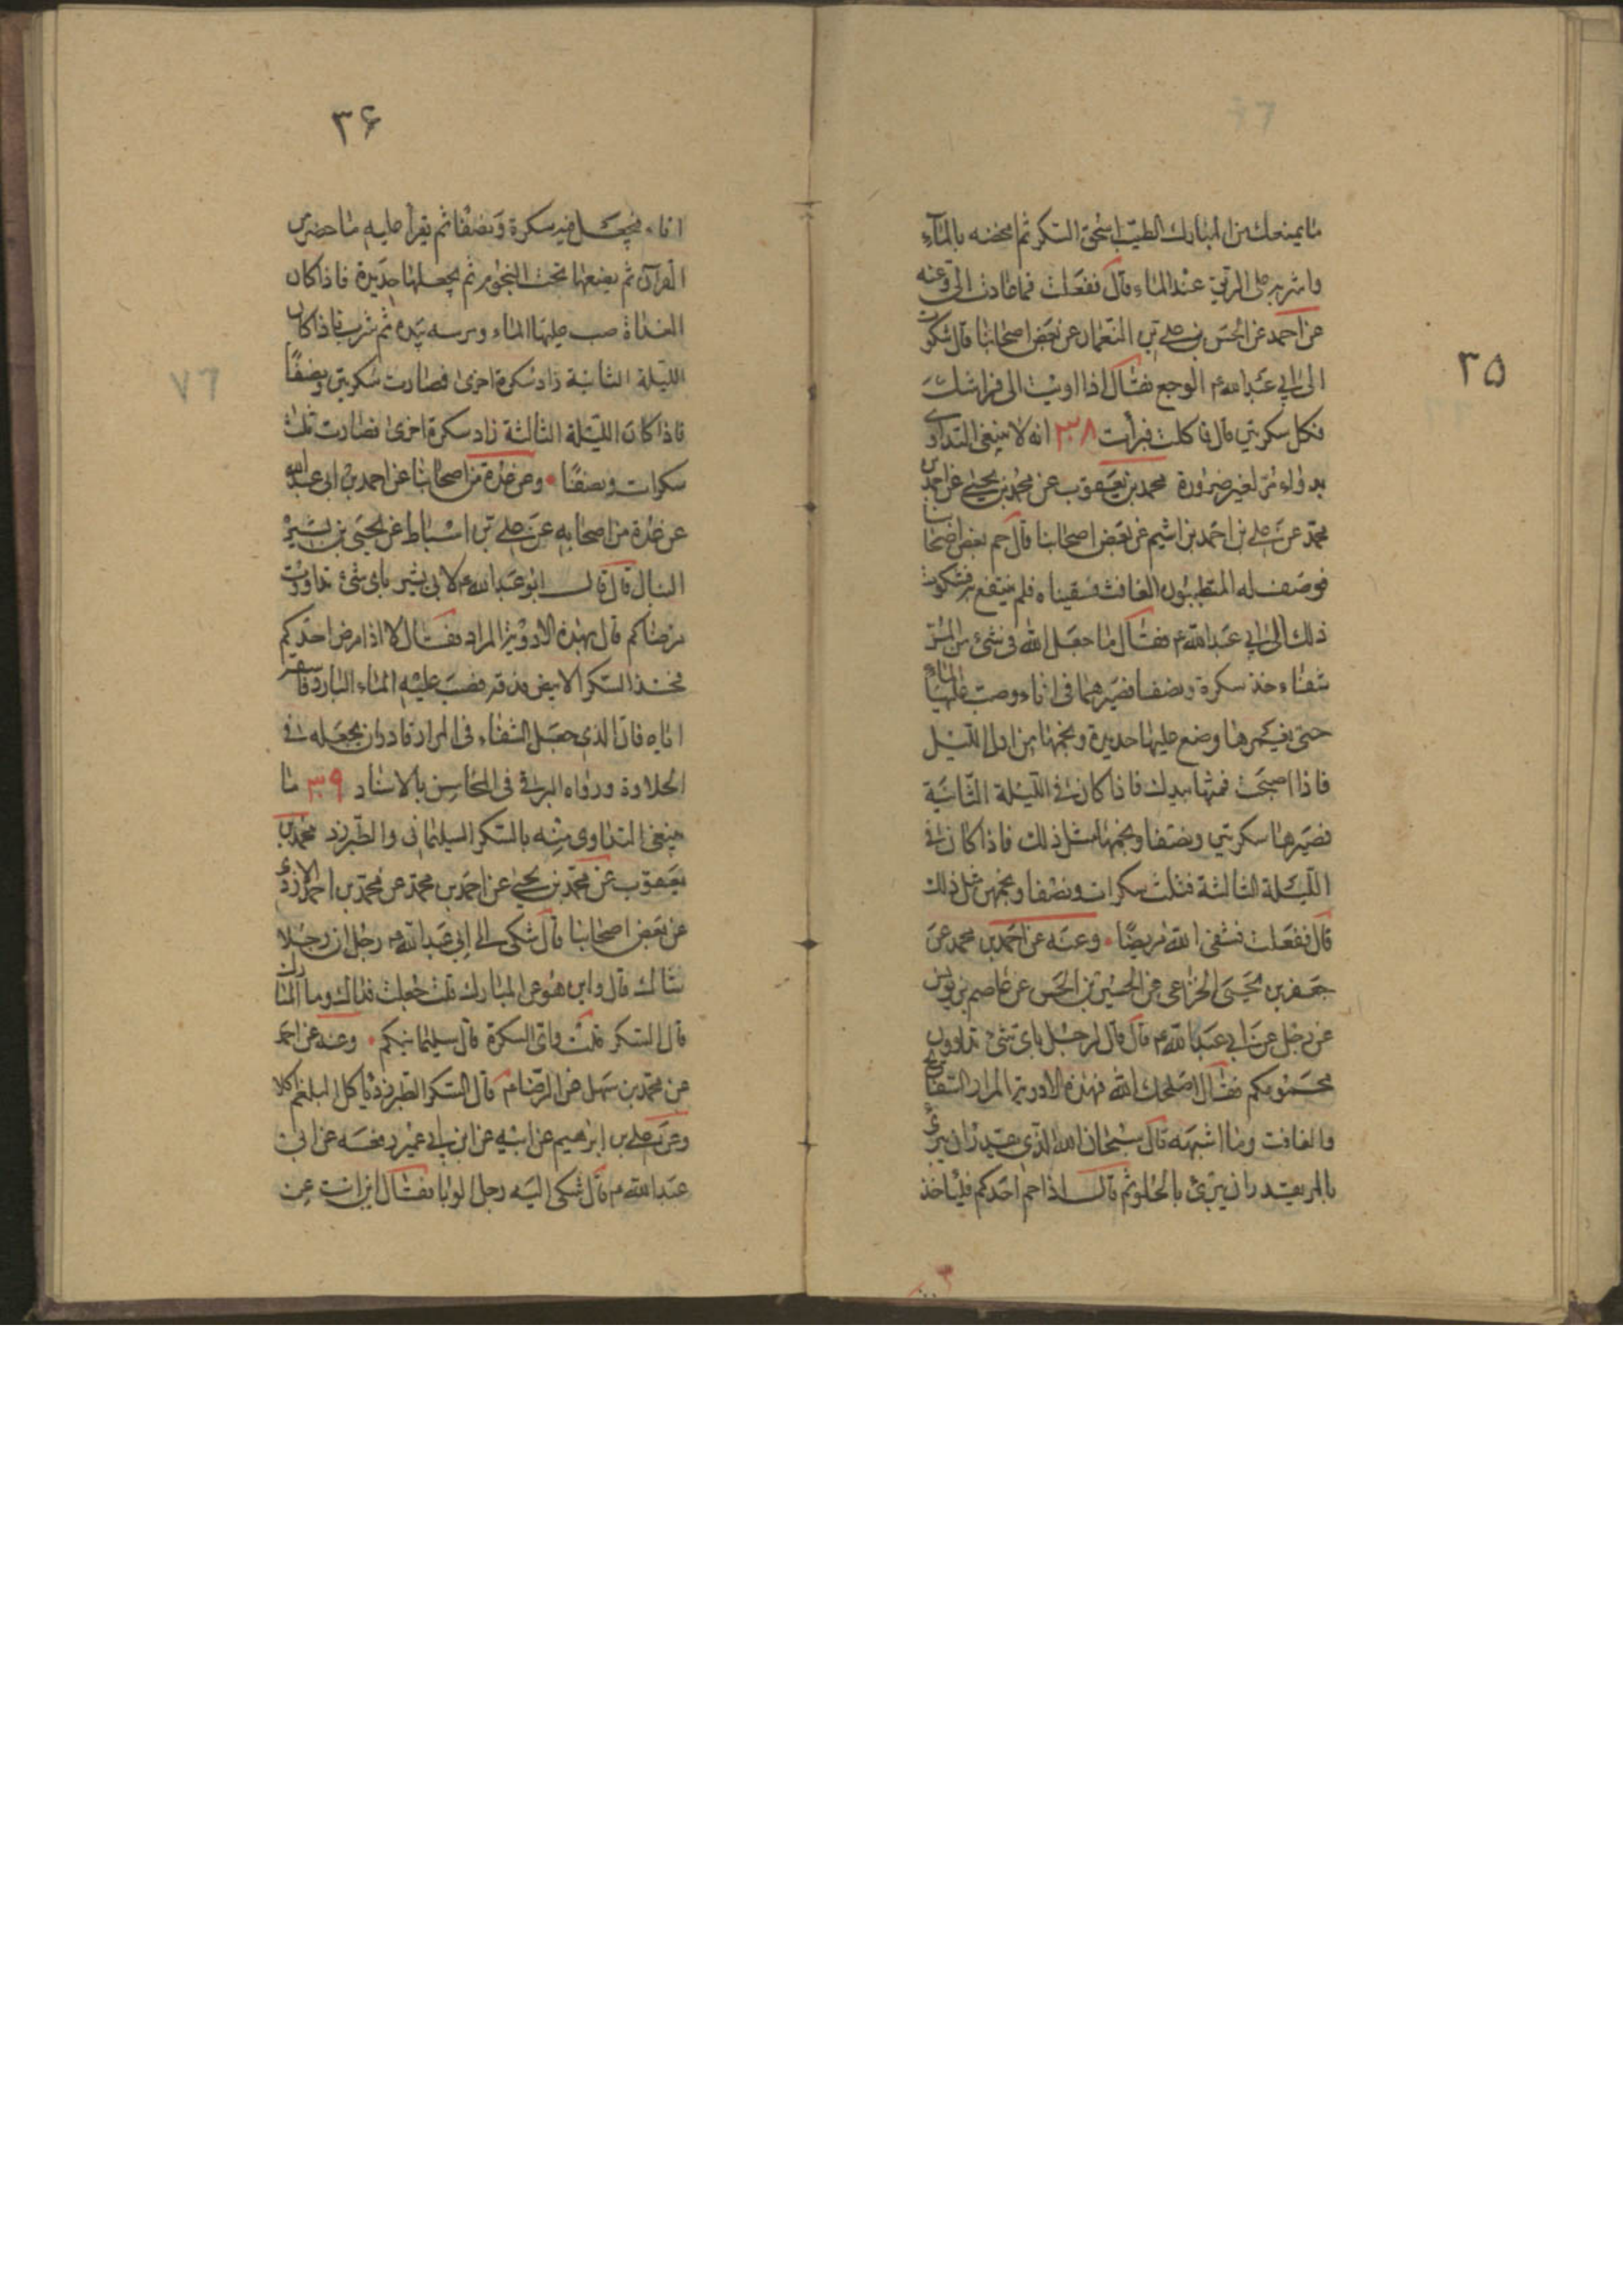 ٣٥
ما يمنعك من المبارك الطيب اسحق السكر ثم امخضه بالماء
واشربه على الريق عند الماء قال ففعلت فما عادت الى وعنه
عن احمد عن الحسن بن على بن النعمان عن بعض اصحابنا قال شكوت
الى ابى عبد الله م الوجع فقال اذا اويت الى فراشك
فكل سكرتين قال فاكلت فبرأت ٣٨ انه لا ينبغى التداوى
بدواء مر لغير ضرورة محمد بن يعقوب عن محمد بن يحيى عن احمد بن
محمد عن على بن احمد بن اشيم عن بعض اصحابنا قال حم بعض اصحابنا
فوصف له المتطببون الغافث فسقيناه فلم ينتفع به فشكوت
ذلك الى ابى عبد الله م فقال ما جعل الله فى شئ من المر
شفاء خذ سكرة ونصفا فصيرهما فى اناء وصب عليها الماء
حتى يغمرها وضع عليها حديدة ونجمها من اول الليل
فاذا اصبحت فمثها بيدك فاذا كان فى الليلة الثانية
فصيرها سكرتين ونصفا ونجمها مثل ذلك فاذا كان فى
الليلة الثالثة فثلث سكرات ونصفا ونجمهن مثل ذلك
قال ففعلت فشفى الله مريضنا وعنه عن احمد بن محمد عن
جعفر بن يحيى الخزاعى عن الحسين بن الحسن عن عاصم بن يونس
عن رجل عن ابى عبد الله م قال قال لرجل باى شئ تداوون
محمومكم فقال اصلحك الله بهذه الادوية المرار السفايج
والغافث وما اشبهه قال سبحان الله الذى يقدر ان يبرئ
بالمر يقدر ان يبرئ بالحلو ثم قال اذا حم احدكم فلياخذ
٣۶
اناء فيجعل فيه سكرة ونصفا ثم يقرأ عليه ما حضر من
القرآن ثم يضعها تحت النجوم ثم يجعلها حديدة فاذا كان
الغداة صب عليها الماء ومرسه بيده ثم شربه فاذا كان
الليلة الثانية زاد سكرة اخرى فصارت سكرتين ونصفا
فاذا كان الليلة الثالثة زاد سكرة اخرى فصارت ثلث
سكرات ونصفا وعن عدة من اصحابنا عن احمد بن ابى عبد الله
عن عدة من اصحابه عن على بن اسباط عن يحيى بن بشير
النبال قال قال ابو عبد الله م لابى بشير باى شئ تداوون
مرضاكم قال بهذه الادوية المرار فقال لا اذا مرض احدكم
فخذ السكر الابيض فدقه فصب عليه الماء البارد فاسقه
اياه فان الذى جعل الشفاء فى المرار قادر ان يجعله فى
الحلاوة ورواه البرقى فى المحاسن بالاسناد ٣٩ ما
ينبغى التداوى منه بالسكر السليمانى والطبرزد محمد بن
يعقوب عن محمد بن يحيى عن احمد بن محمد عن محمد بن احمد الازدى
عن بعض اصحابنا قال شكى الى ابى عبد الله م رجل ان رجلا
شاك قال واين هو عن المبارك قلت جعلت فداك وما المبارك
قال السكر قلت واى السكرة قال سليمانيكم وعنه عن احمد
عن محمد بن سهل عن الرضا م قال السكر الطبرزد ياكل البلغم اكلا
وعن على بن ابرهيم عن ابيه عن ابن ابى عمير رفعه عن ابى
عبد الله م قال شكى اليه رجل الوبا فقال اين انت عن
٧٦